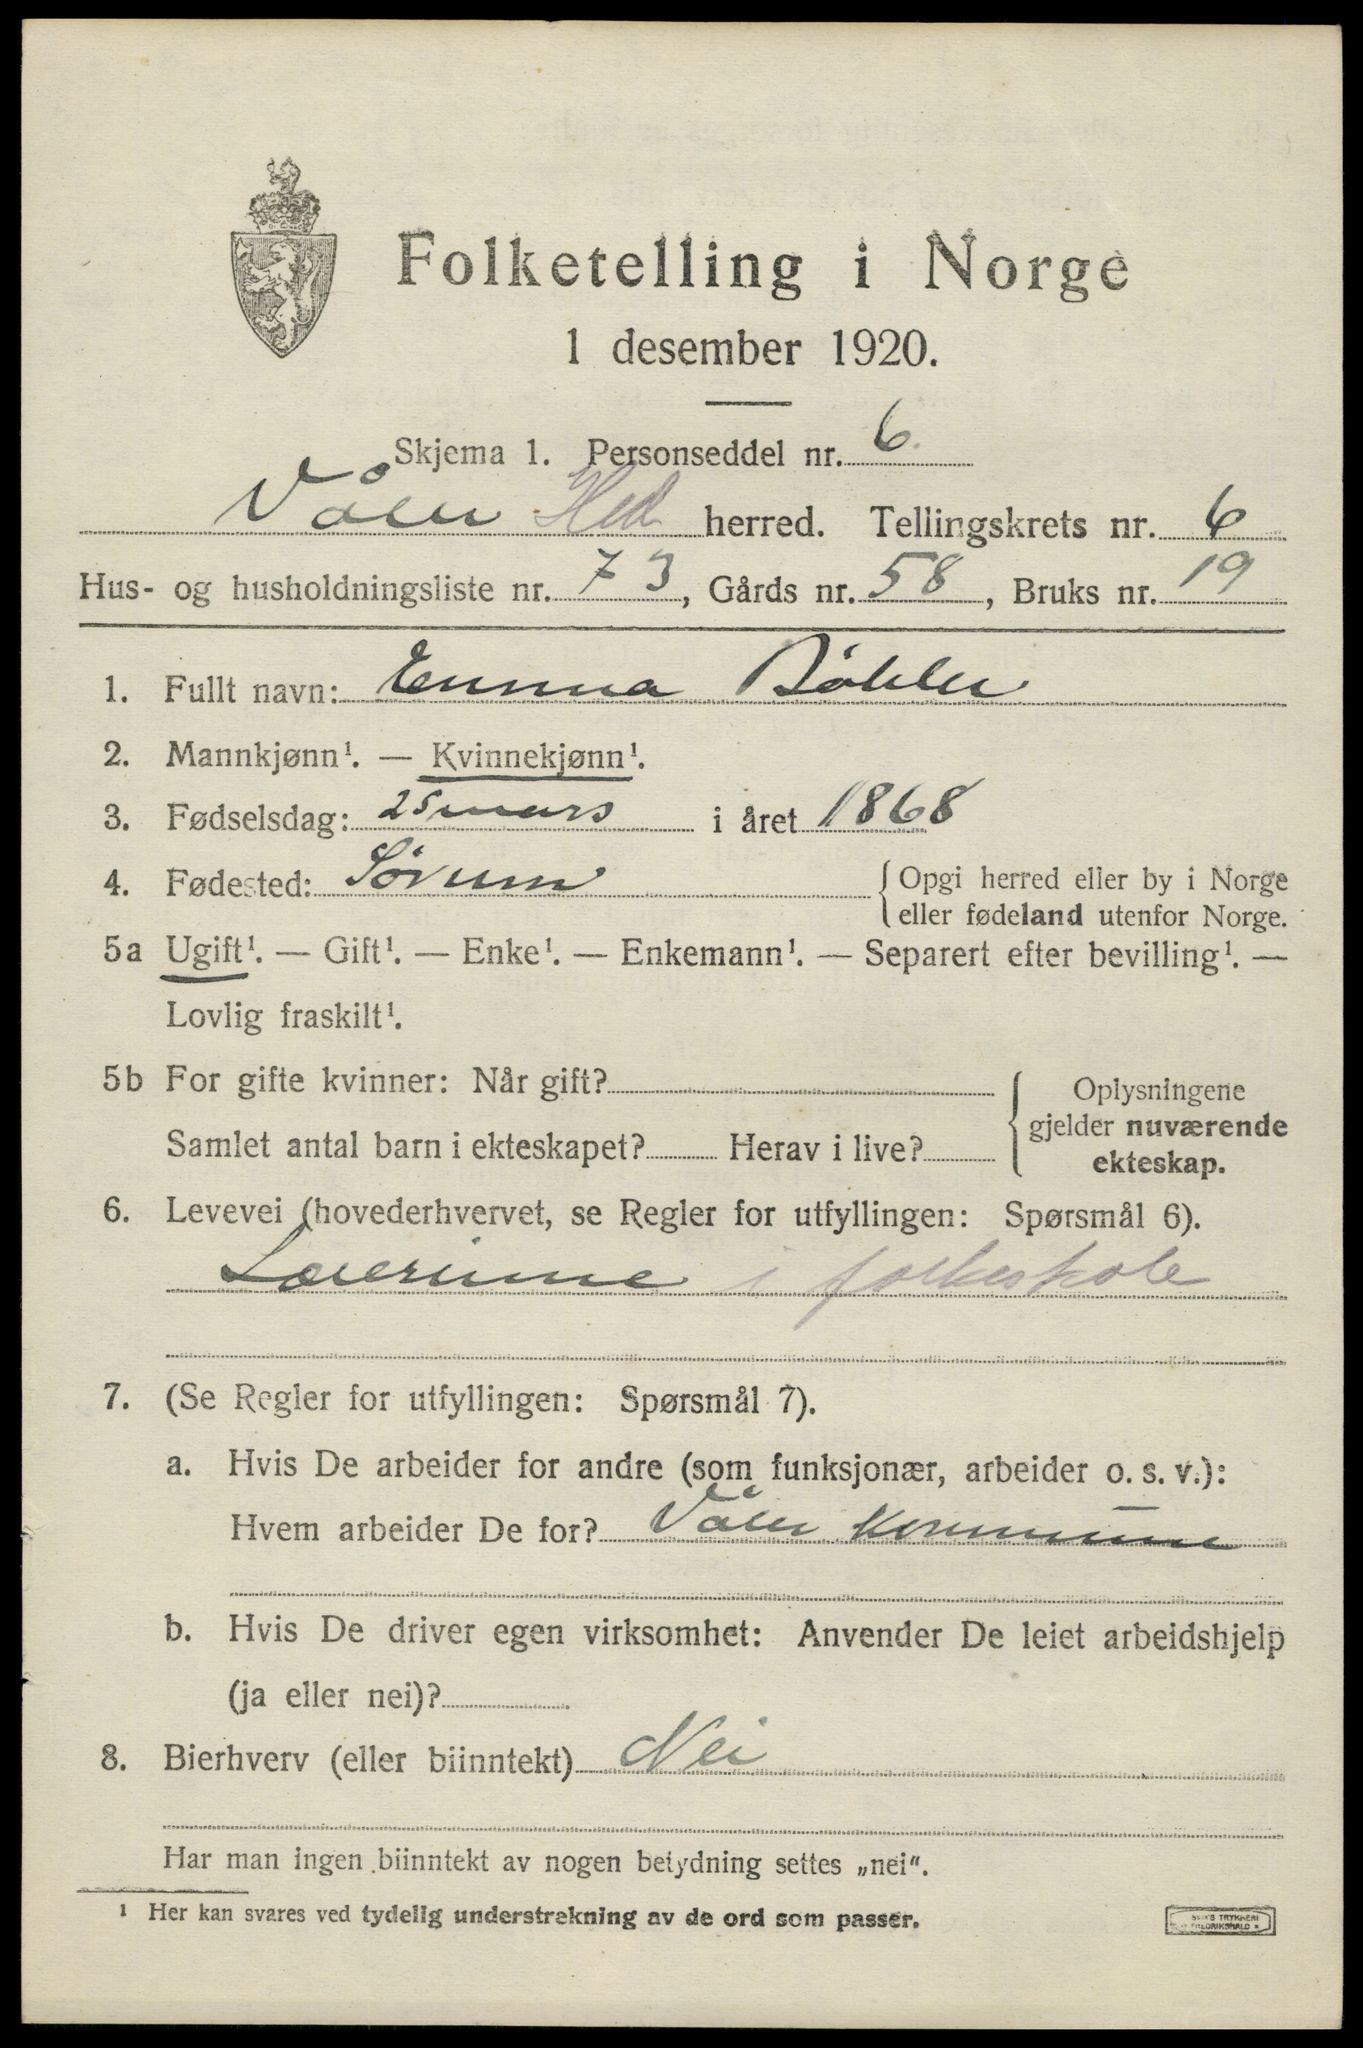 Folketelling i Norge
1 desember 1920.
Skjema 1. Personseddel nr. 6
Våler Hed herred. Tellingskrets nr. 6
Hus- og husholdningsliste nr. 73, Gårds nr. 58, Bruks nr. 19
1. Fullt navn: Emma Bøhler
2. Mannkjønn¹. — Kvinnekjønn¹.
3. Fødselsdag: 25 mars i året 1868
4. Fødested: Sørum { Opgi herred eller by i Norge
eller fødeland utenfor Norge.
5a Ugift¹. — Gift¹. — Enke¹. — Enkemann¹. — Separert efter bevilling¹. —
Lovlig fraskilt¹.
5b For gifte kvinner: Når gift?
Samlet antal barn i ekteskapet? Herav i live?
Oplysningene
gjelder nuværende
ekteskap.
6. Levevei (hovederhvervet, se Regler for utfyllingen: Spørsmål 6).
Lærerinne i folkeskole
7. (Se Regler for utfyllingen: Spørsmål 7).
a. Hvis De arbeider for andre (som funksjonær, arbeider o. s. v.):
Hvem arbeider De for? Våler kommune
b. Hvis De driver egen virksomhet: Anvender De leiet arbeidshjelp
(ja eller nei)?
8. Bierhverv (eller biinntekt) Nei
Har man ingen biinntekt av nogen betydning settes „nei“.
¹ Her kan svares ved tydelig understrekning av de ord som passer.
TRYKKERI
FREDRIKSHALD